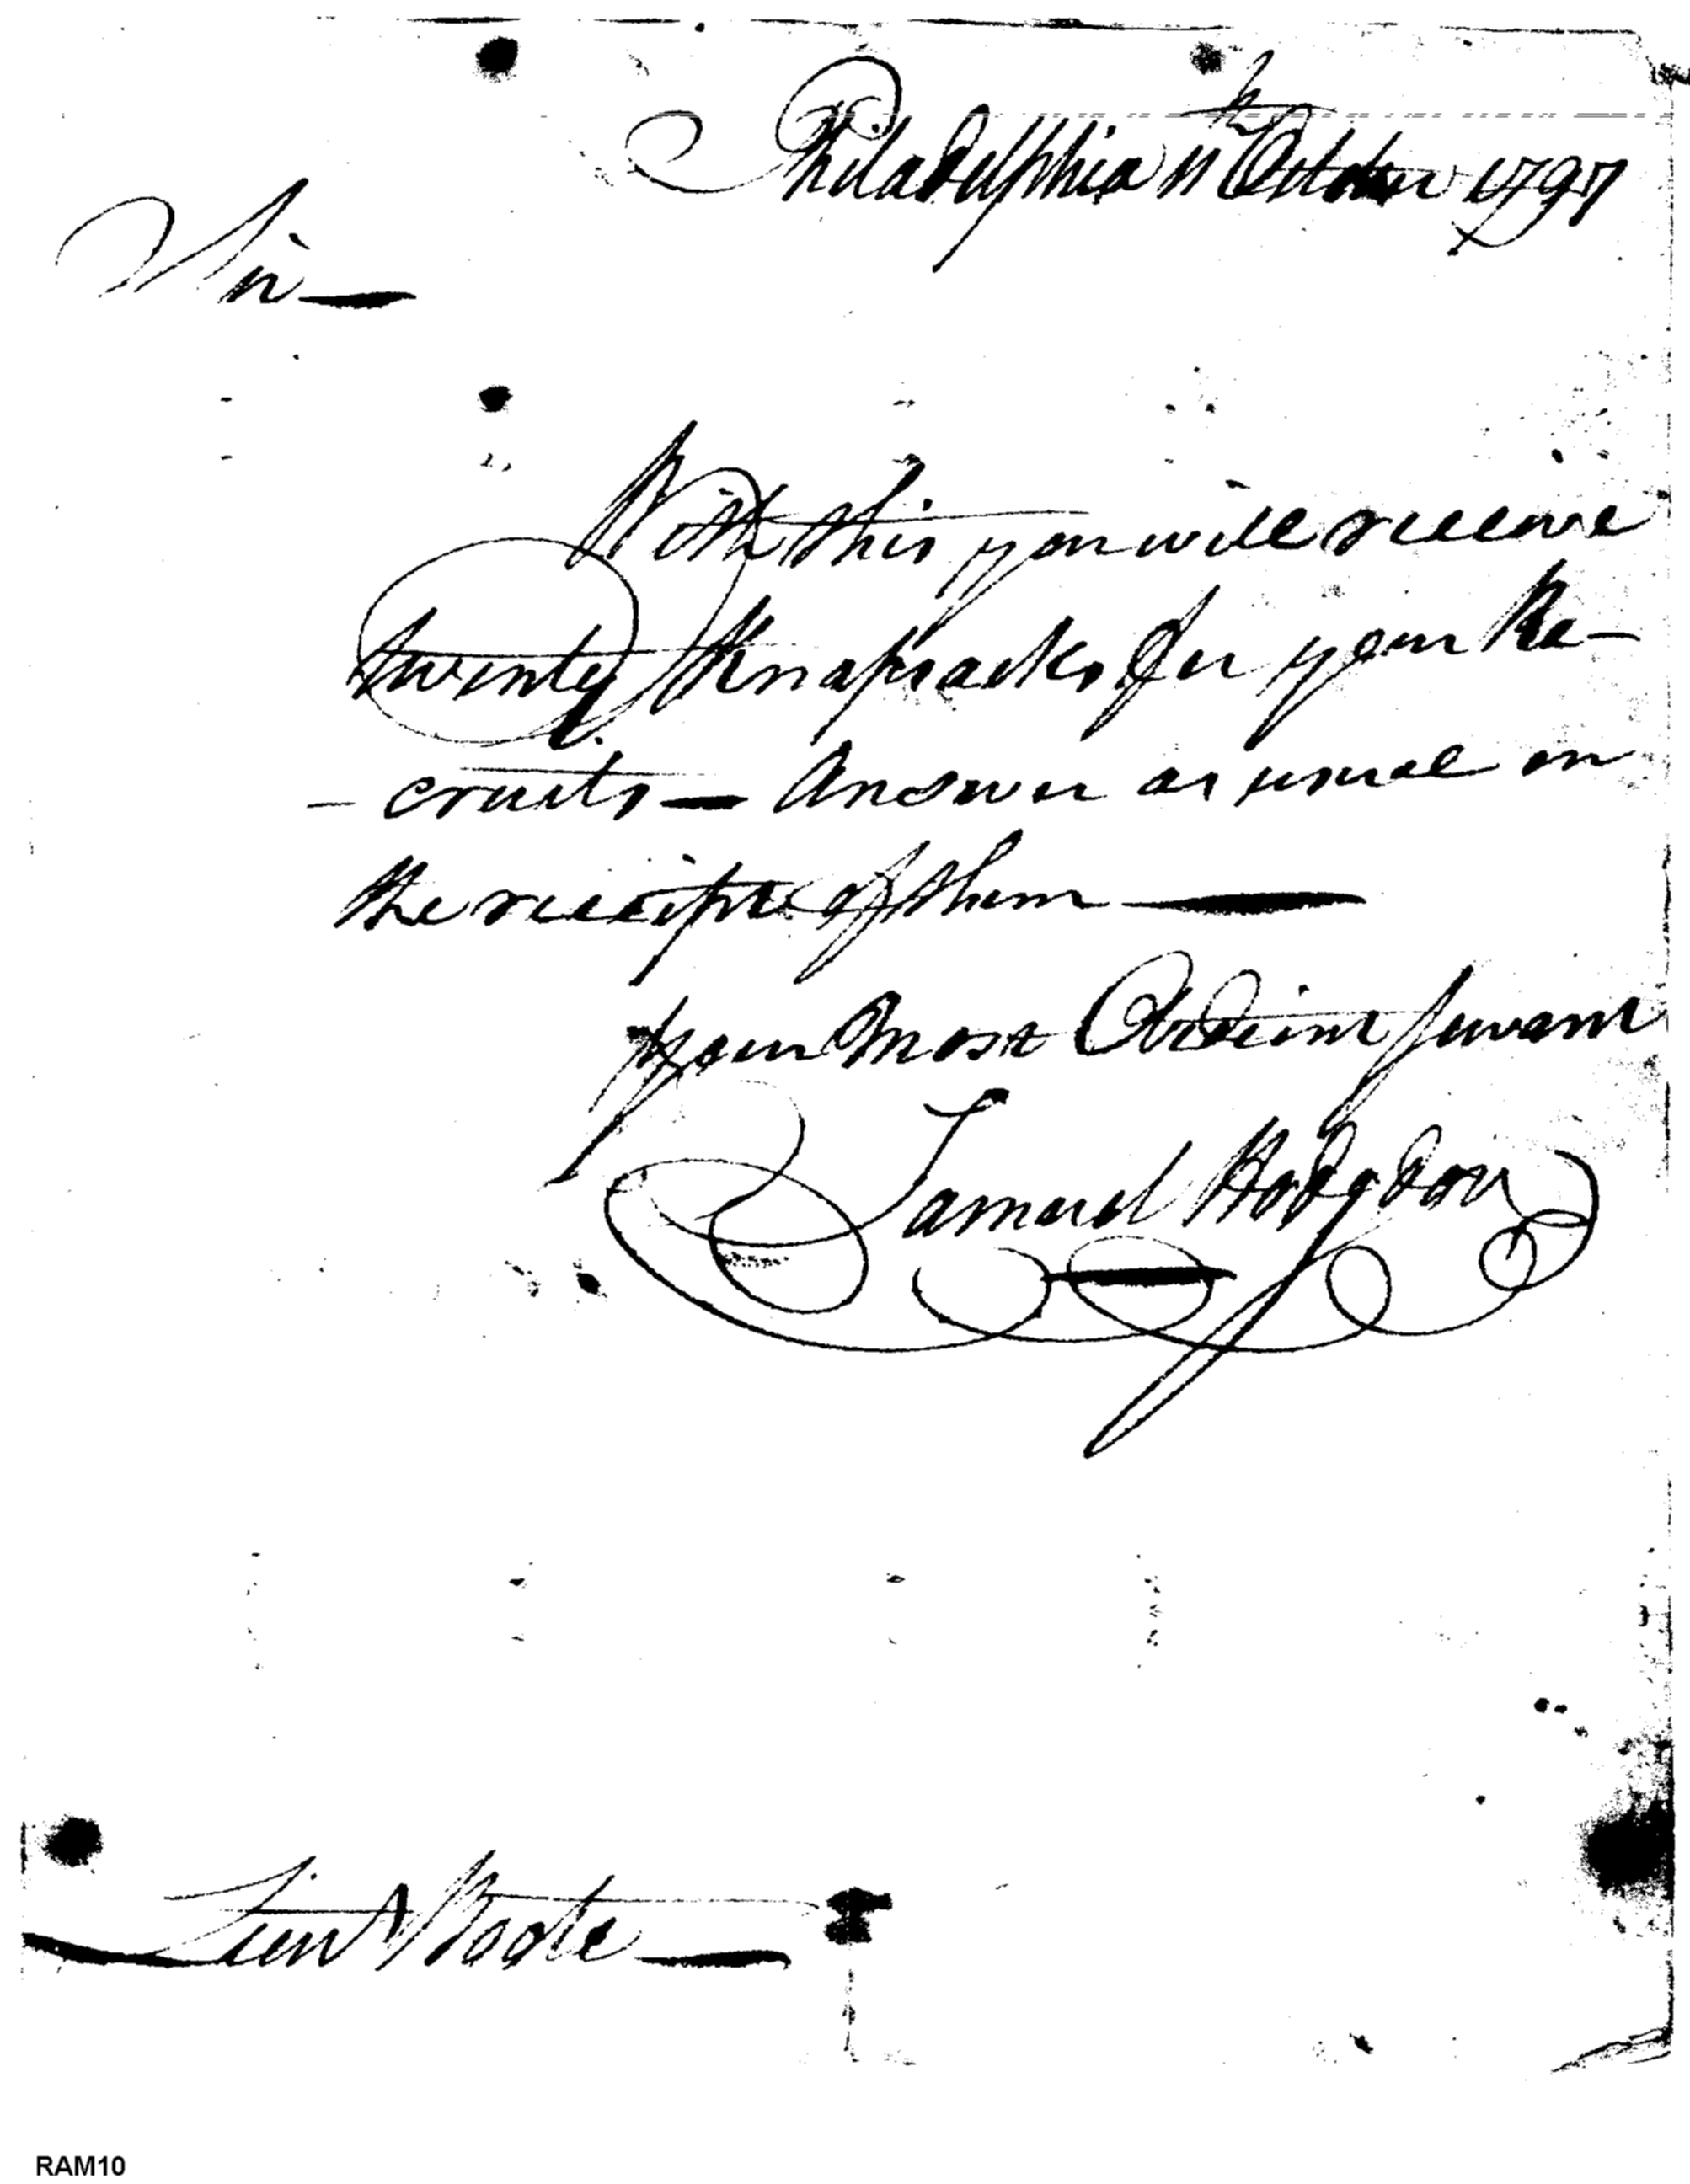 Philadelphia 11th October 1797
Sir —
With this you will receive
twenty Knapsacks for your Re-
- cruits — Answer as usual on
the receipt of them —
Your Most Obedient Servant
Samuel Hodgdon
Lieut
RAM10